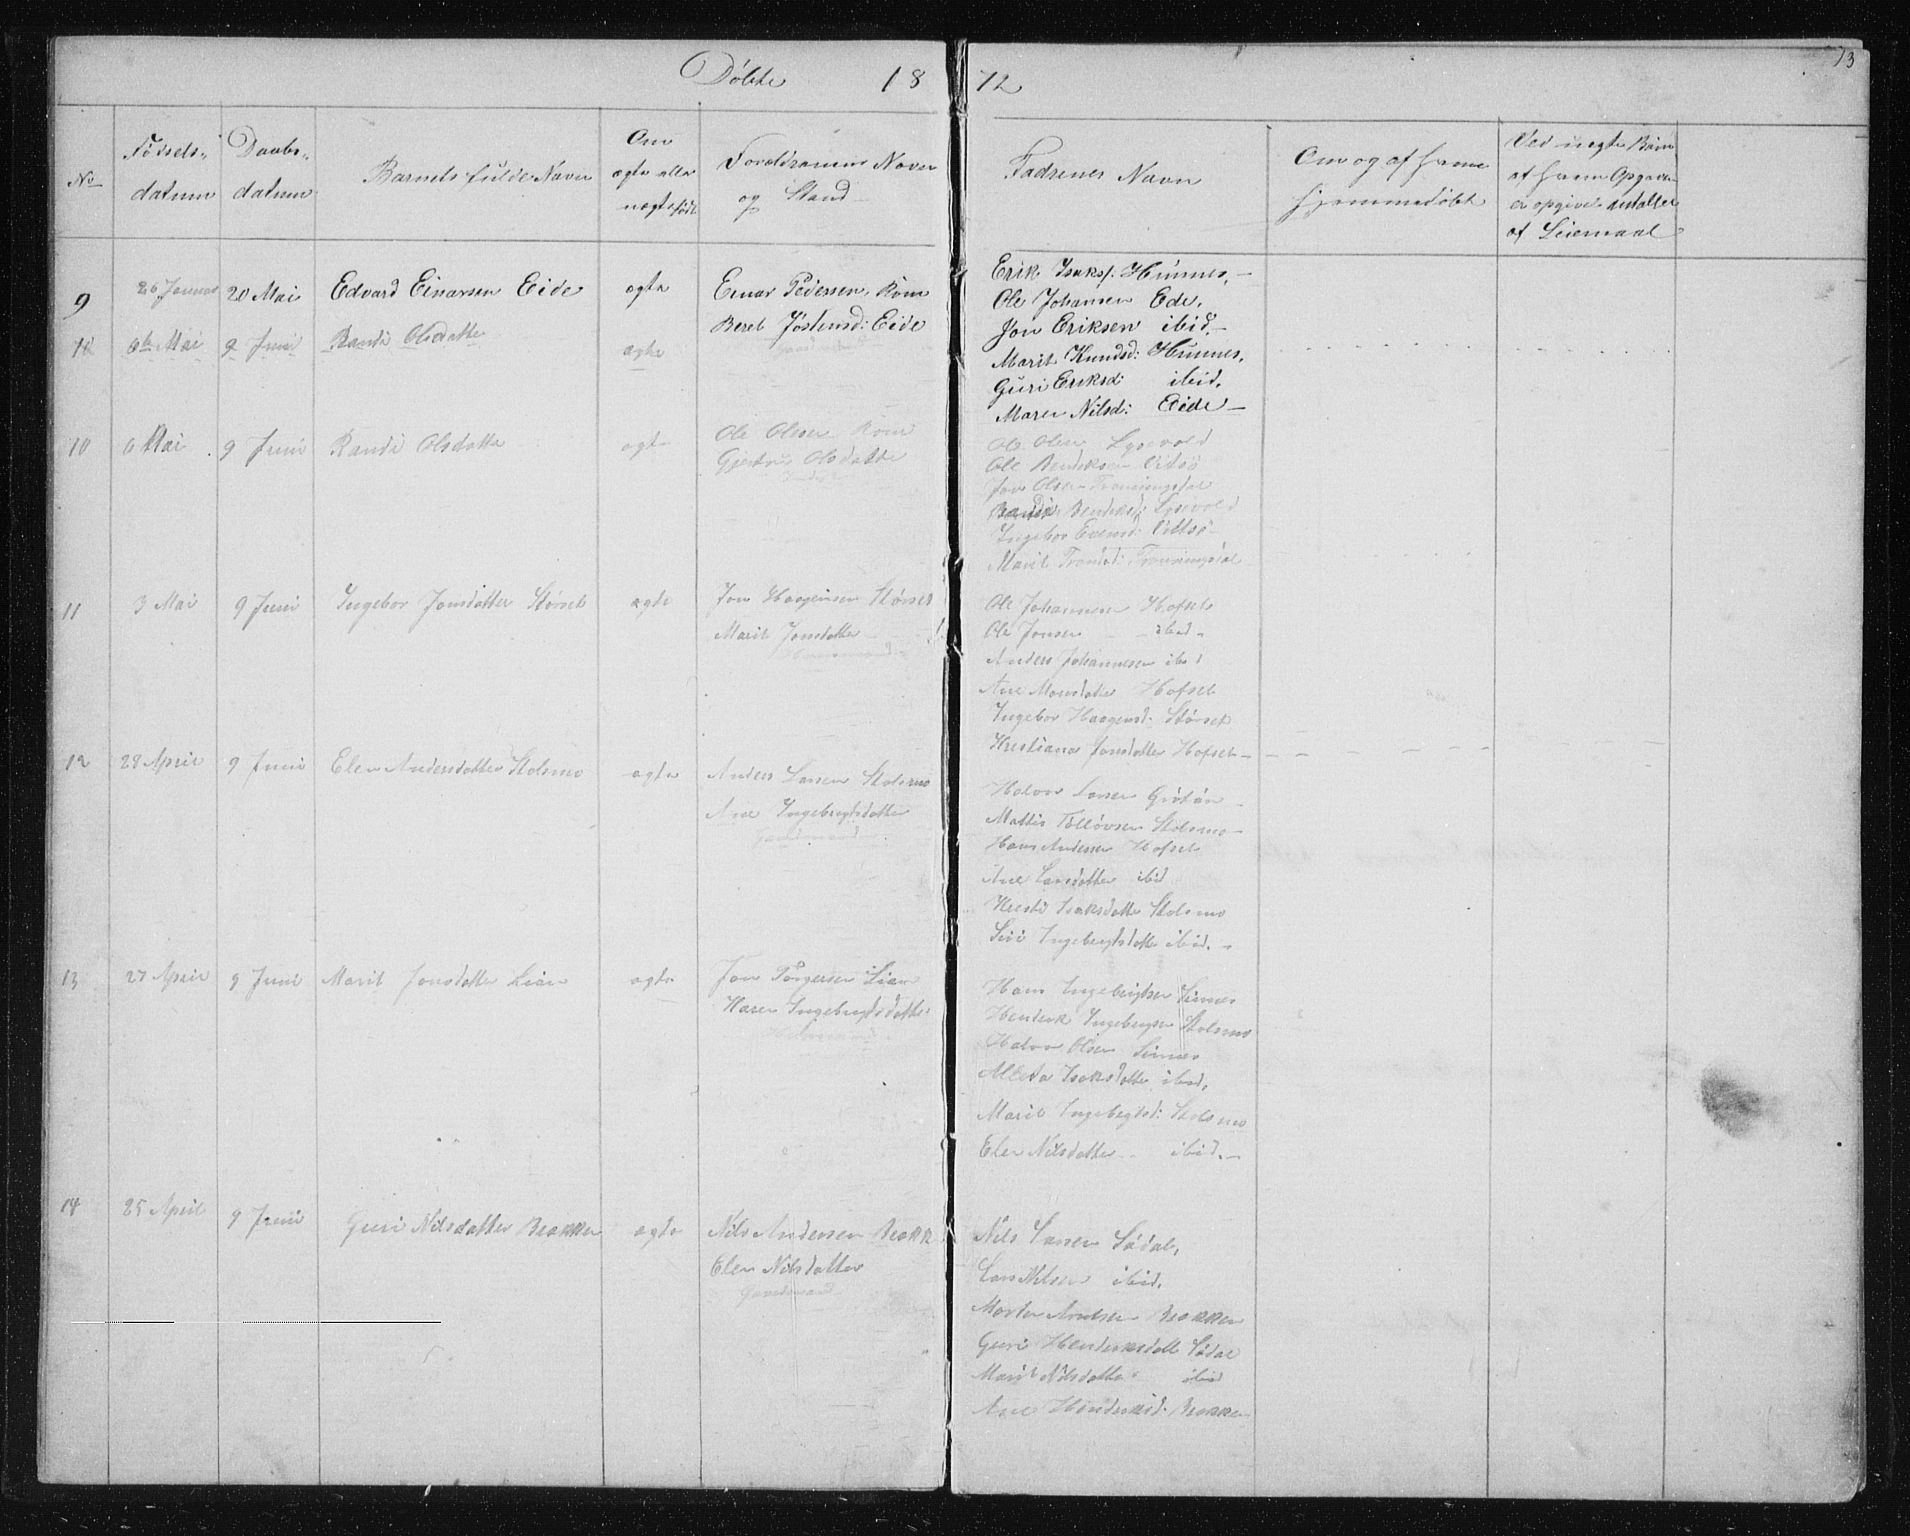 Döbte 18 72
73
No
Födsels-
datum
Daabs-
datum
Barnets fulde Navn
Om
ægte eller
uægte födt
Forældrenes Navn
og Stand
Faddrenes Navn
Om og af hvem
hjemmedöbt
Ved uægte Börn
af hvem Opgaven
er opgivet antallet
af Leiermaal
9 26 Januar 20 Mai Edvard Einarsen Eide ægte
Einar Pedersen, Kone
Beret Jöstensd: Eide
Gaardmand
Erik Isaks: Hünnes,
Ole Johansen Ede,
Jon Eriksen ibid,
Marit Knudsd: Hünnes,
Guri Eriksd: ibid,
Maren Nilsd: Eide
10 6te Mai 9 Juni Randi Olsdatte ægte
10 6 Mai 9 Juni Randi Olsdatte ægte
Ole Olsen Kone
Gjertru Olsdatte
Ole Olsen Lysevold
Ole Bendiksen Vitsö
Jon Olsen Tronningsdal
Bendiksd: Lysevold
Ingebor Evensd: Vitsö
Marit Trondsd: Tronningsdal
11 3 Mai 9 Juni Ingebor Jonsdatter Störset ægte
Jon Haagensen Störset
Marit Jonsdatter
Huusmand
Ole Johannesen Hofset
Ole Jonsen ibid
Anders Johannesen ibid
Ane Monsdatter Hofset
Ingebor Haagensd: Störset
Kristiana Jonsdatter Hofset
12 28 April 9 Juni Elen Andersdatter Stolsmo ægte
Anders Larsen Stolsmo
Ane Ingebrigtsdatter
Gaardmand
Halvor Larsen Grötån
Mattis Tollövsen Stolsmo
Hans Andersen Hofset
Ane Larsdatter ibid
Kresti Isaksdatte Stolsmo
Siri Ingebrigtsdatte ibid.
13 27 April 9 Juni Marit Jonsdatter Lian ægte
Jon Törgersen Lian
Karen Ingebrigtsdatte
Huusmand
Hans Ingebrigtsen Sinnes
Henderk Ingebrigsn Stolsmo
Halvor Olsen Sinnes
Alleta Isaksdatte ibid,
Marit Ingebrigtsd: Stolsmo
Elen Nilsdatter ibid.
14 25 April 9 Juni Guri Nilsdatter Brækken ægte
Nils Andersen Brækk
Elen Nilsdatter
Gaardmand
Nils Larsen Södal,
Lars Nilsen ibid,
Morten Arntsen Brækken
Guri Henderksdatt Södal
Marit Nilsdatter ibid
Ane Henderksd: Brækken